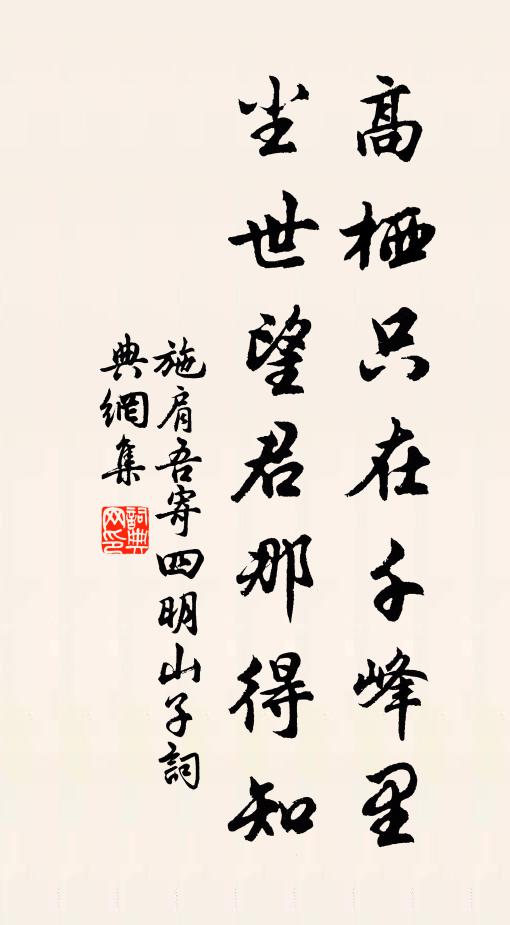 高栖只在千峰里
尘世望君那得知
施肩吾寄四明山子詞
典網集
詞典网印